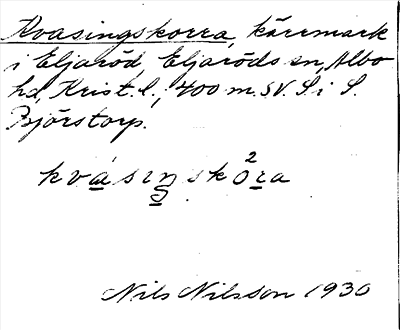 Kvasingskorra, kärrmark
i Eljaröd, Eljaröds sn, Albo
hd, Krist. l., 400 m. SV. S. i S.
Björstorp.
kvásıŋskò²ra
Nils Nilsson 1930